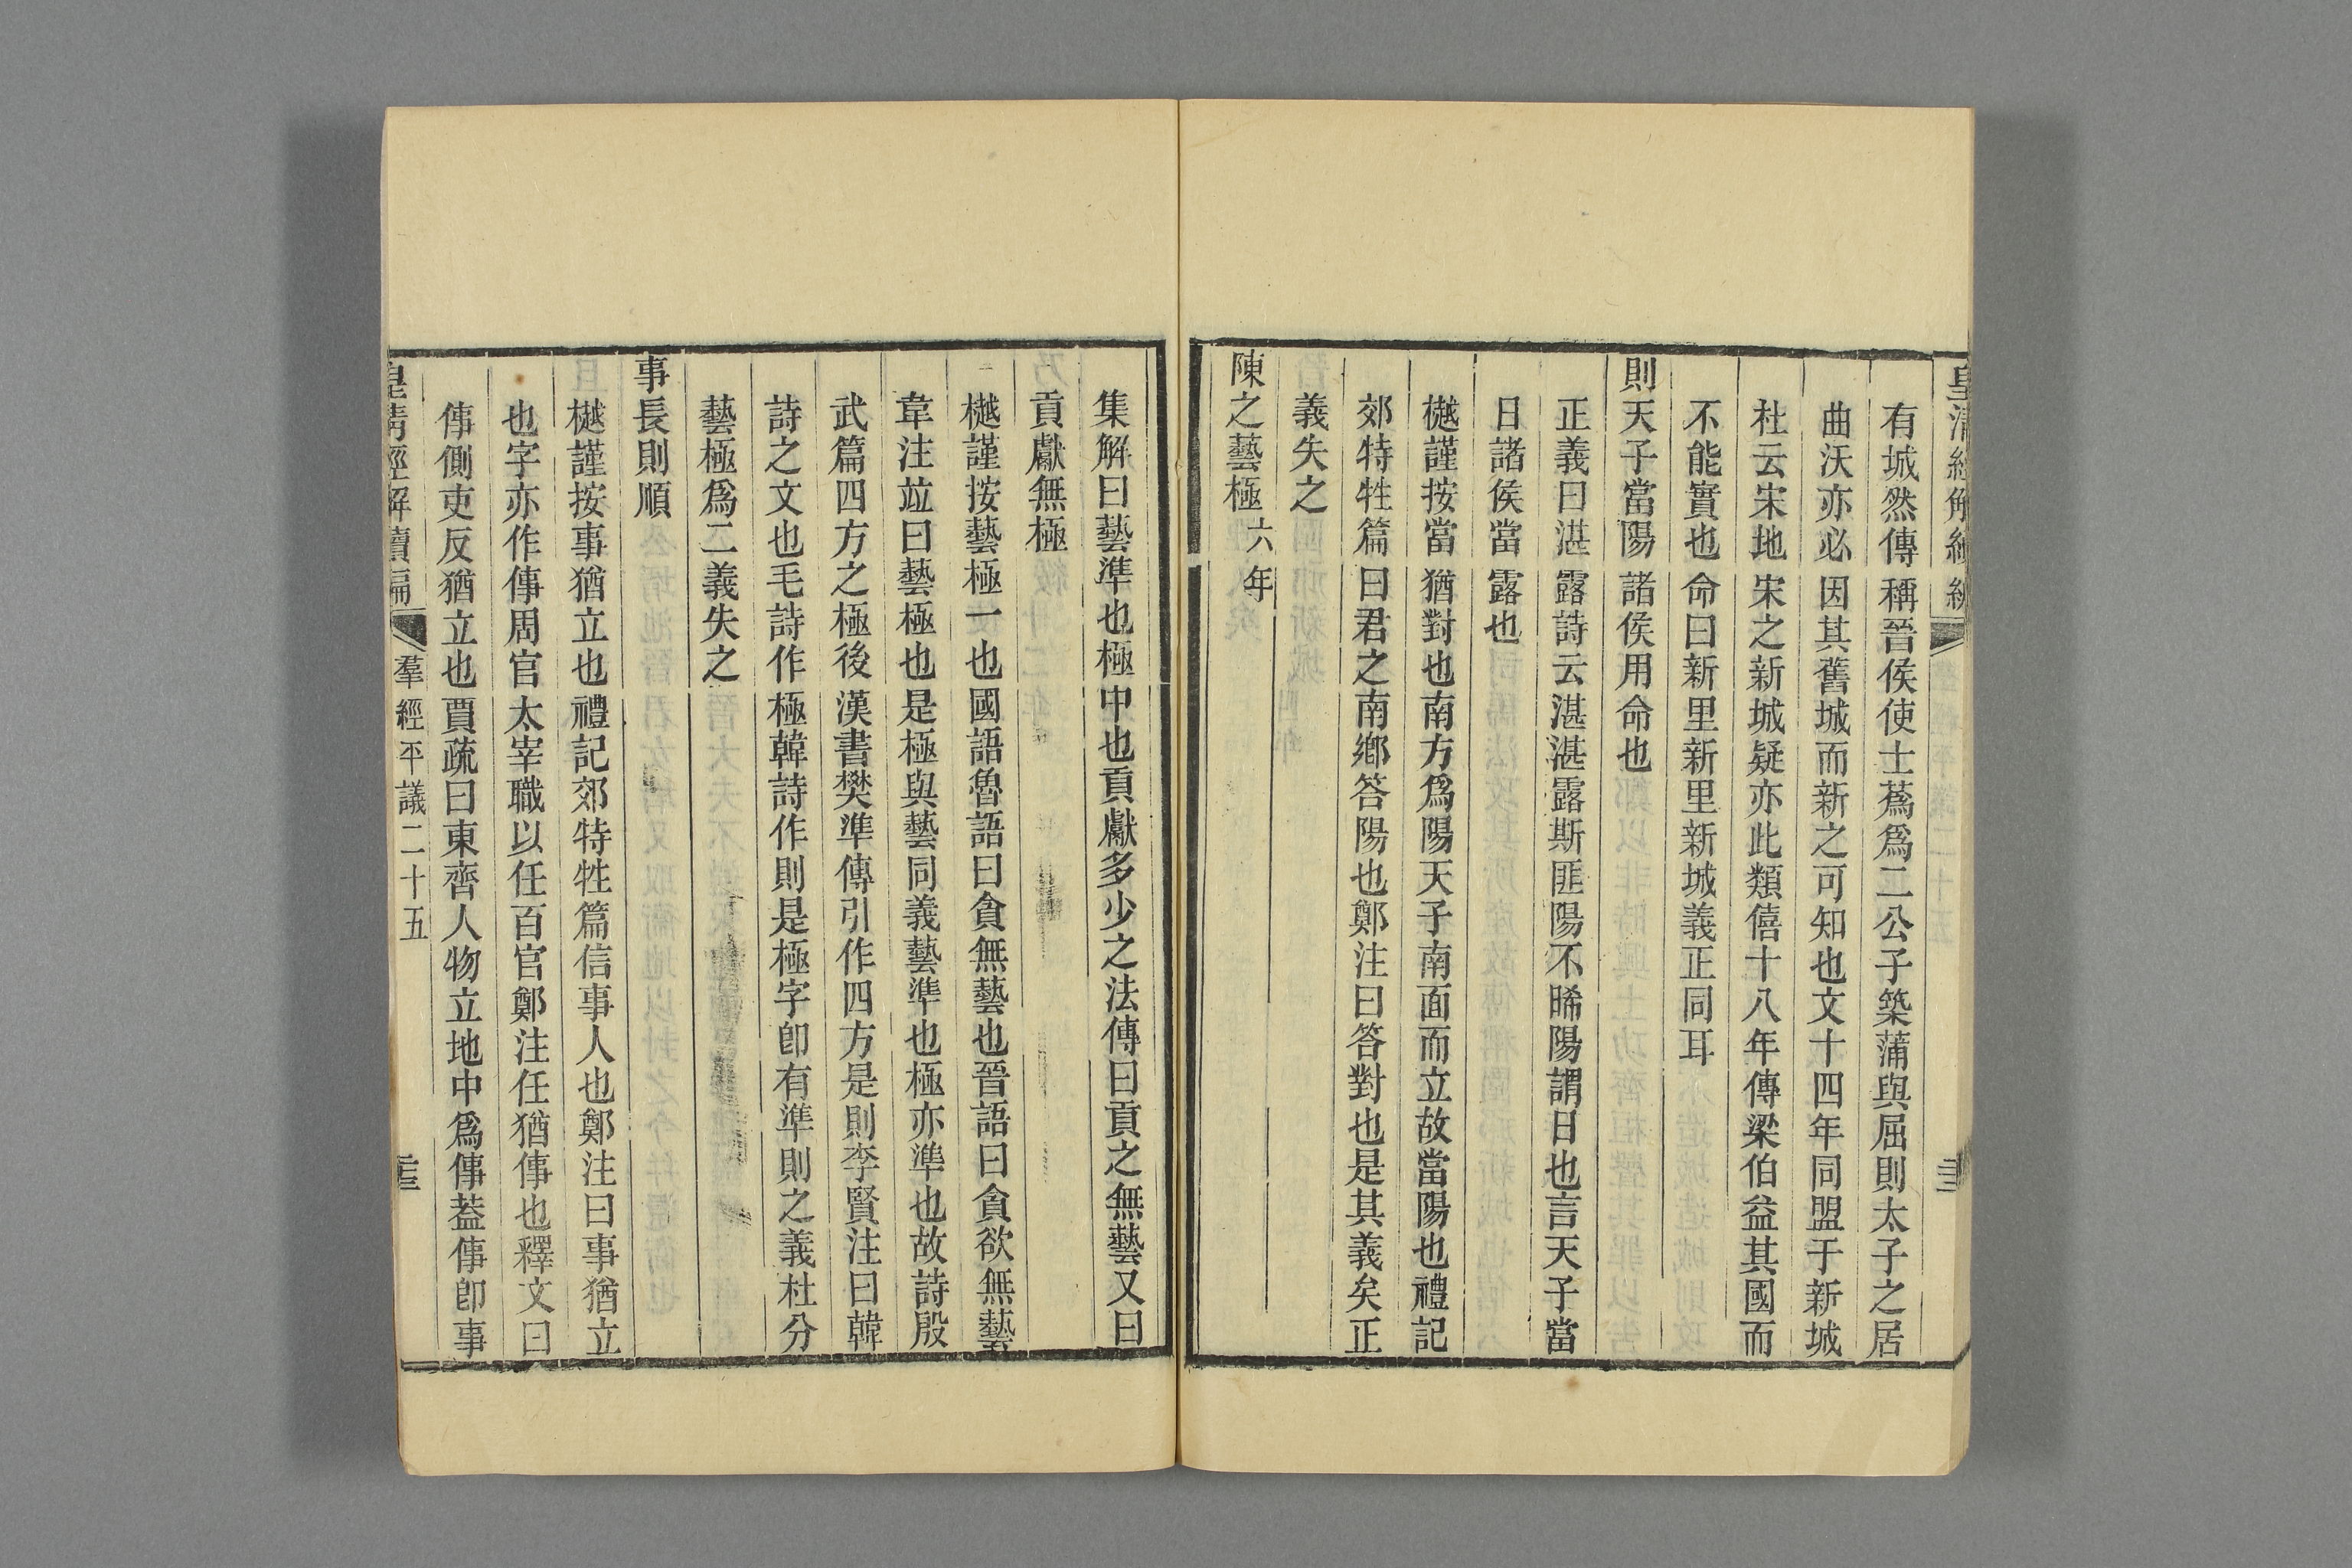 有城然傳稱晉侯使士蒍爲二公子築蒲與屈則太子之居
曲沃亦必因其舊城而新之可知也文十四年同盟于新城
杜云宋地宋之新城疑亦此類僖十八年傳梁伯益其國而
不能實也命曰新里新里新城義正同耳
則天子當陽諸侯用命也
正義曰湛露詩云湛湛露斯匪陽不晞陽謂日也言天子當
日諸侯當露也
樾謹按當猶對也南方爲陽天子南面而立故當陽也禮記
郊特牲篇曰君之南鄉答陽也鄭注曰答對也是其義矣正
義失之
陳之藝極六年
集解曰藝準也極中也貢獻多少之法傳曰貢之無藝又曰
貢獻無極
樾謹按藝極一也國語魯語曰貪無藝也晉語曰貪欲無藝
韋注竝曰藝極也是極與藝同義藝準也極亦準也故詩殷
武篇四方之極後漢書樊準傳引作四方是則李賢注曰韓
詩之文也毛詩作極韓詩作則是極字卽有準則之義杜分
藝極爲二義失之
事長則順
樾謹按事猶立也禮記郊特牲篇信事人也鄭注曰事猶立
也字亦作傳周官太宰職以任百官鄭注任猶傳也釋文曰
傳側吏反猶立也賈疏曰東齊人物立地中爲傳葢傳卽事
皇清經解續編
羣經平議二十五